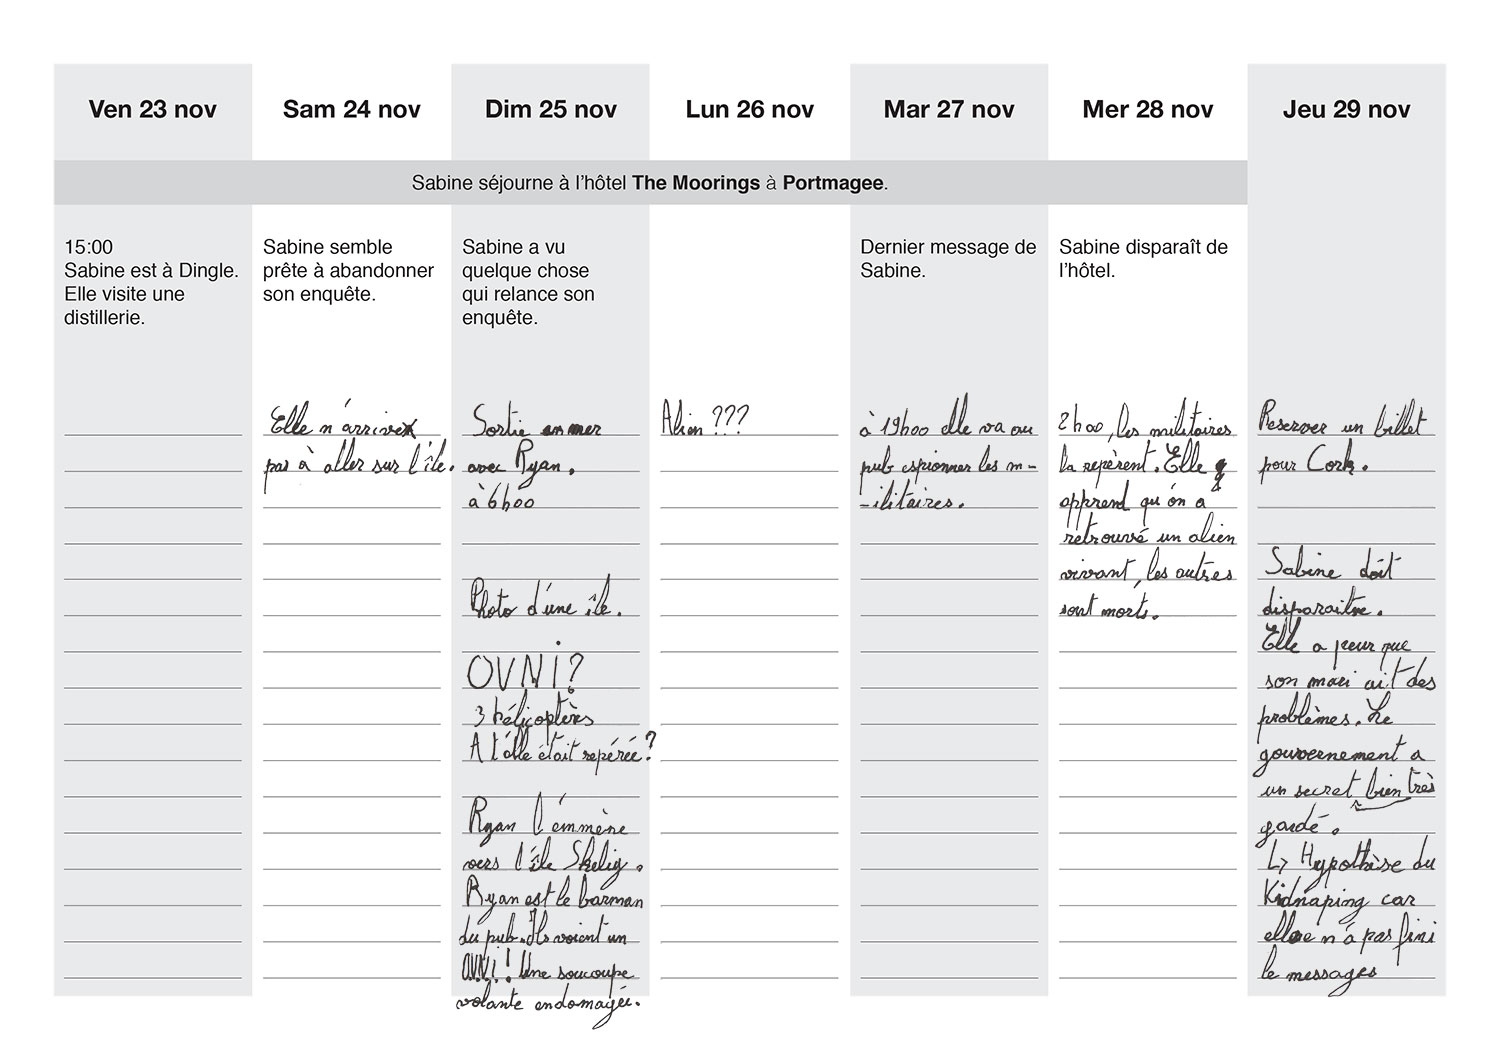 Ven 23 nov
Sam 24 nov
Dim 25 nov
Lun 26 nov
Mar 27 nov
Mer 28 nov
Jeu 29 nov
Sabine séjourne à l'hôtel The Moorings à Portmagee.
15:00
Sabine est à Dingle.
Elle visite une
distillerie.
Sabine semble
prête à abandonner
son enquête.
Elle n'arrive
pas à aller sur l'île.
Sabine a vu
quelque chose
qui relance son
enquête.
Sortie en mer
avec Ryan.
à 6h00
Photo d'une île.
OVNI?
3 hélicoptères
A t'elle était repérée?
Ryan l'emmène
vers l'île Skelig.
Ryan est le barman
du pub. Ils voient un
OVNI! Une soucoupe
volante endomagée.
Alien ???
Dernier message de
Sabine.
à 19h00 elle va au
pub espionner les m-
-ilitaires.
Sabine disparaît de
l'hôtel.
2h00, les militaires
la repèrent. Elle
apprend qu'on a
retrouvé un alien
vivant, les autres
sont morts.
Reserver un billet
pour Cork.
Sabine doit
disparaitre.
Elle a peur que
son mari ait des
problèmes. Le
gouvernement a
un secret bien très
gardé.
↳ Hypothèse du
Kidnaping car
elle n'a pas fini
le messages